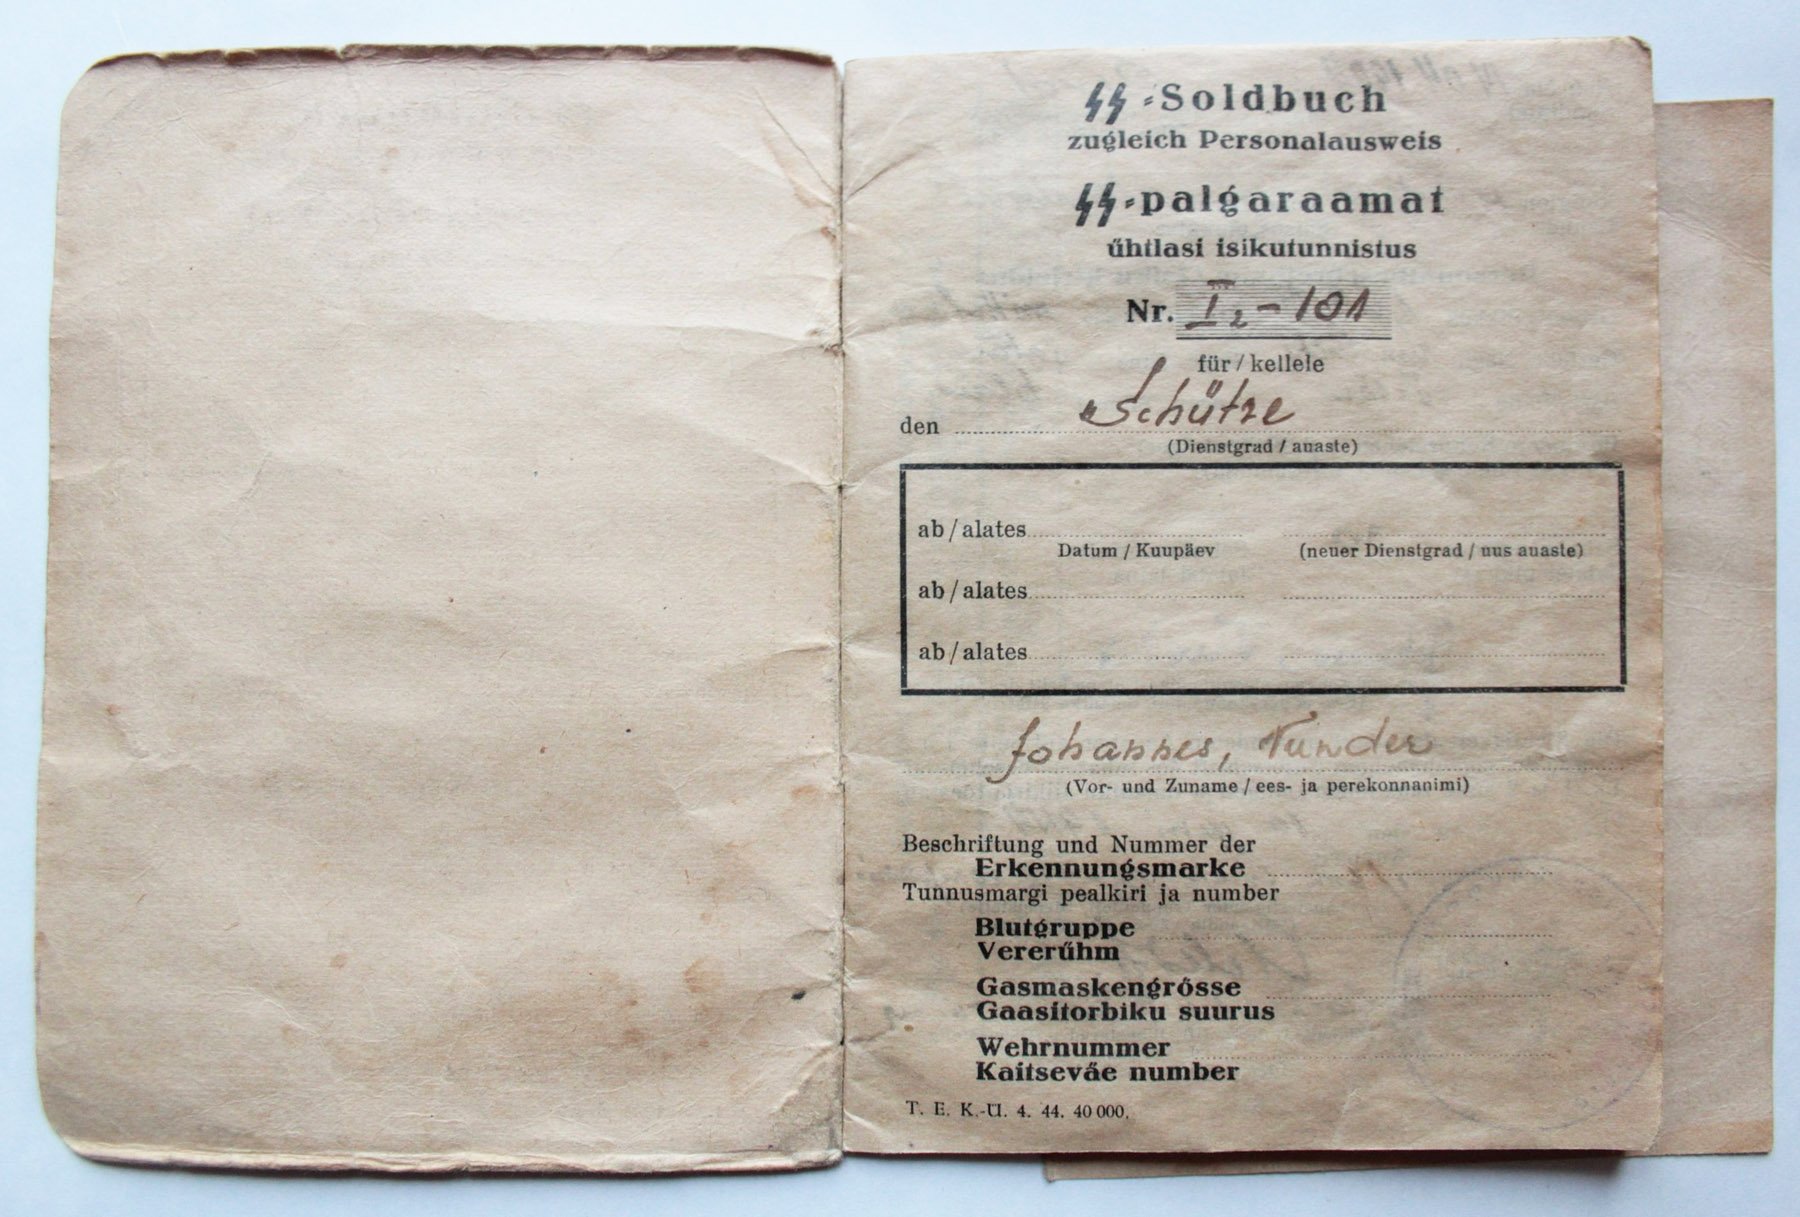 SS-Soldbuch
zugleich Personalausweis
SS-palgaraamat
ühtlasi isikutunnistus
Nr. I₂-101
für / kellele
den Schütze
(Dienstgrad / auaste)
ab / alates
Datum / Kuupäev (neuer Dienstgrad / uus auaste)
ab / alates
ab / alates
Johannes, Tunder
(Vor- und Zuname / ees- ja perekonnanimi)
Beschriftung und Nummer der
Erkennungsmarke
Tunnusmargi pealkiri ja number
Blutgruppe
Vererühm
Gasmaskengrösse
Gaasitorbiku suurus
Wehrnummer
Kaitseväe number
T. E. K.-Ü. 4. 44. 40 000.